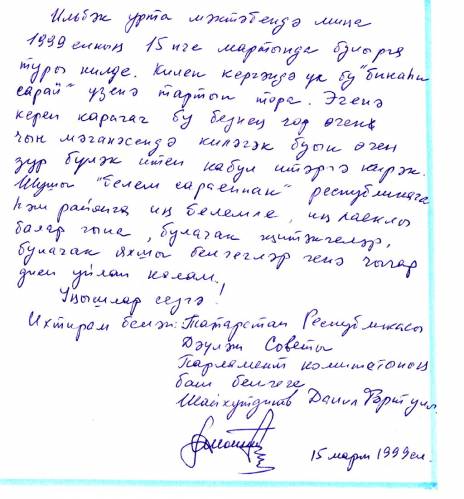 Ильбәк урта мәктәбендә миңа
1999 елның 15 нче мартында булырга
туры килде. Килеп кергәндә үк бу "бинаһи
сарай" үзенә тартып тора. Эченә
кереп карагач бу безнең год өчен
чын мәгънәсендә киләчәк буын өчен
зур бүләк итеп кабул итәргә кирәк.
Шушы "белем сараеннан" республикага
һәм районга иң белемле, иң лаеклы
балар гына, булачак җитәкчеләр,
булачак яхшы белгечләр генә чыгар
дип уйлап калам.
Уңышлар сезгә!
Ихтирам белән: Татарстан Республикасы
Дәүләт Советы
Парламент комитетының
баш белгече
Шайхутдинов Данил
15 март 1999 ел.